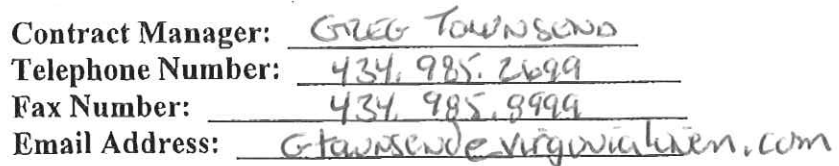 Contract Manager: GREG TOWNSEND
Telephone Number: 434. 985. 2699
Fax Number: 434. 985. 8999
Email Address: Gtownsend@virginialinen.com